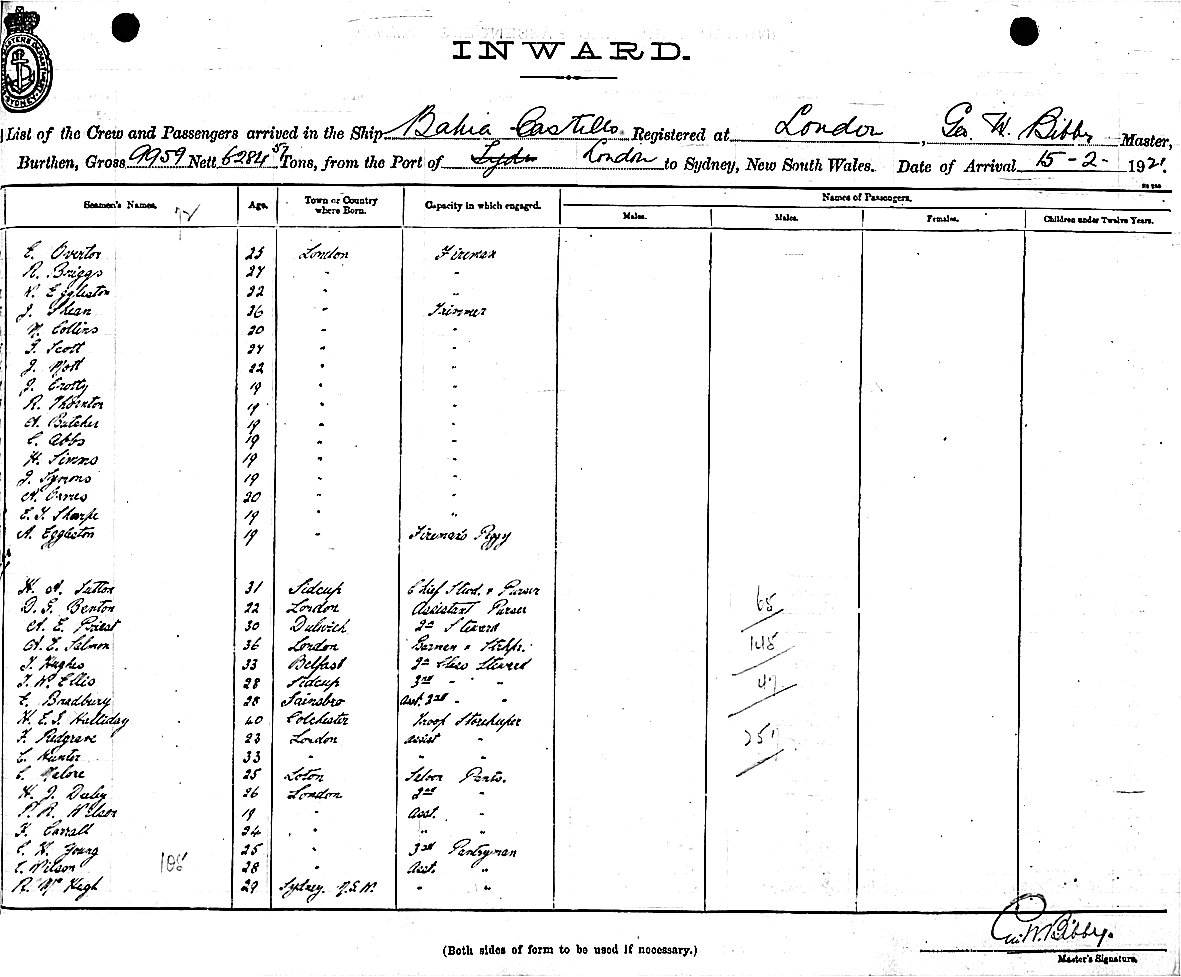 INWARD.
List of the Crew and Passengers arrived in the Ship Bahia Castillo Registered at London, Geo. W. Bibby Master,
Burthen, Gross 9959 Nett 6284 Tons, from the Port of London to Sydney, New South Wales. Date of Arrival 15-2- 1921.
Names of Passengers.
Seamen's Names. Age. Town or Country where Born. Capacity in which engaged. Males. Males. Females. Children under Twelve Years.
E. Overton 25 London Fireman
R. Briggs 27 " "
W. Eggleston 22 " "
J. Shean 36 " Trimmer
W. Collins 20 " "
Scott 27 " "
J. Mott 22 " "
J. Crotty 19 " "
R. Thornton 19 " "
A. Butcher 19 " "
C. Abbs 19 " "
H. Simms 19 " "
J. Symons 19 " "
20 " "
Sharpe 19 " "
A. Eggleston 19 " Fireman's Peggy
H. A. Sutton 31 Sidcup Chief Stwd. & Purser
D. Benton 22 London Assistant Purser 65
A. E. Priest 30 Dulwich 2nd Steward
A. E. Salmon 36 London Barmen & Stkpr. 145
Hughes 33 Belfast 2nd Class Steward
W. Ellis 28 Sidcup 3rd " " 47
E. Bradbury 28 Gainsbro Asst. 3rd " "
H. Halliday 40 Colchester Troop Storekeeper
F. Redgrave 23 London Assist " 257
C. Hunter 33 " " "
25 Saloon Pantr.
H. J. 26 London 2nd "
P. R. Wilson 19 " Asst. "
F. Carrall 24 " " "
C. H. Young 25 " 3rd Pantryman
E. Wilson 108 28 " Asst. "
R. McHugh 29 Sydney N.S.W. " "
Geo. W. Bibby.
(Both sides of form to be used if necessary.)
Master's Signature.